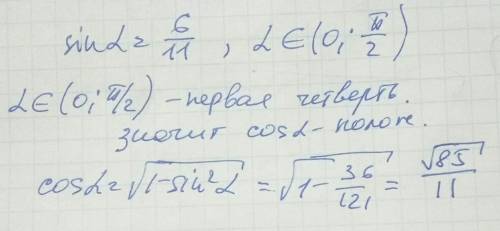 sinα = 6/11 , α ∈ (0; π/2)
α ∈ (0; π/2) - первая четверть.
значит cosα - полож.
cosα = √(1-sin²α) = √(1 - 36/121) = √85/11